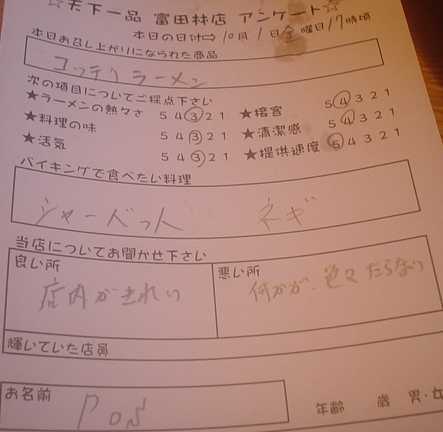 ☆天下一品 富田林店 アンケート☆
本日の日付⇒10月1日金曜日17時頃
本日お召し上がりになられた商品
コッテリラーメン
次の項目についてご採点下さい
★ラーメンの熱々さ 5 4 3 2 1 ★接客 5 4 3 2 1
★料理の味 5 4 3 2 1 ★清潔感 5 4 3 2 1
★活気 5 4 3 2 1 ★提供速度 5 4 3 2 1
バイキングで食べたい料理
シャーベット ネギ
当店についてお聞かせ下さい
良い所 悪い所
店内がきれい 何かが、色々たらない
輝いていた店員
お名前 Pos 年齢 歳 男・女